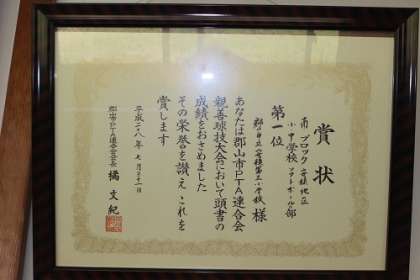 賞状
南ブロック 安積地区
小・中学校 ソフトボールの部
第一位
郡山市立安積第三小学校 様
あなたは郡山市PTA連合会
親善球技大会において頭書の
成績をおさめました
その栄誉を讃え これを
賞します
平成二八年 七月三十一日
郡山市PTA連合会会長 橘 文紀